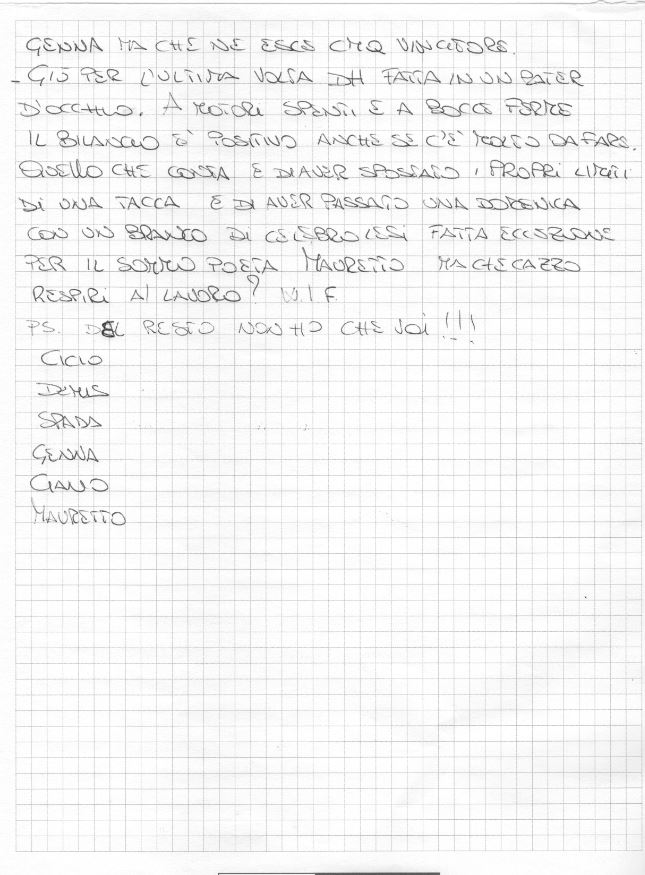 GENNA MA CHE NE ESCE CMQ VINCITORE.
- GIÙ PER L'ULTIMA VOLTA DH FATTA IN UN BATER
D'OCCHIO. A MOTORI SPENTI E A BOCCE FERME
IL BILANCIO E' POSITIVO ANCHE SE C'E' MOLTO DA FARE.
QUELLO CHE CONTA E DI AVER SPOSTATO I PROPRI LIMITI
DI UNA TACCA E DI AVER PASSATO UNA DOMENICA
CON UN BRANCO DI CELEBROLESI FATTA ECCEZIONE
PER IL SOMMO POETA MAURETTO MA CHE CAZZO
RESPIRI AL LAVORO? W.I F.
PS. DEL RESTO NON HO CHE VOI !!!
CICIO
DEMIS
SPADA
GENNA
CIANO
MAURETTO